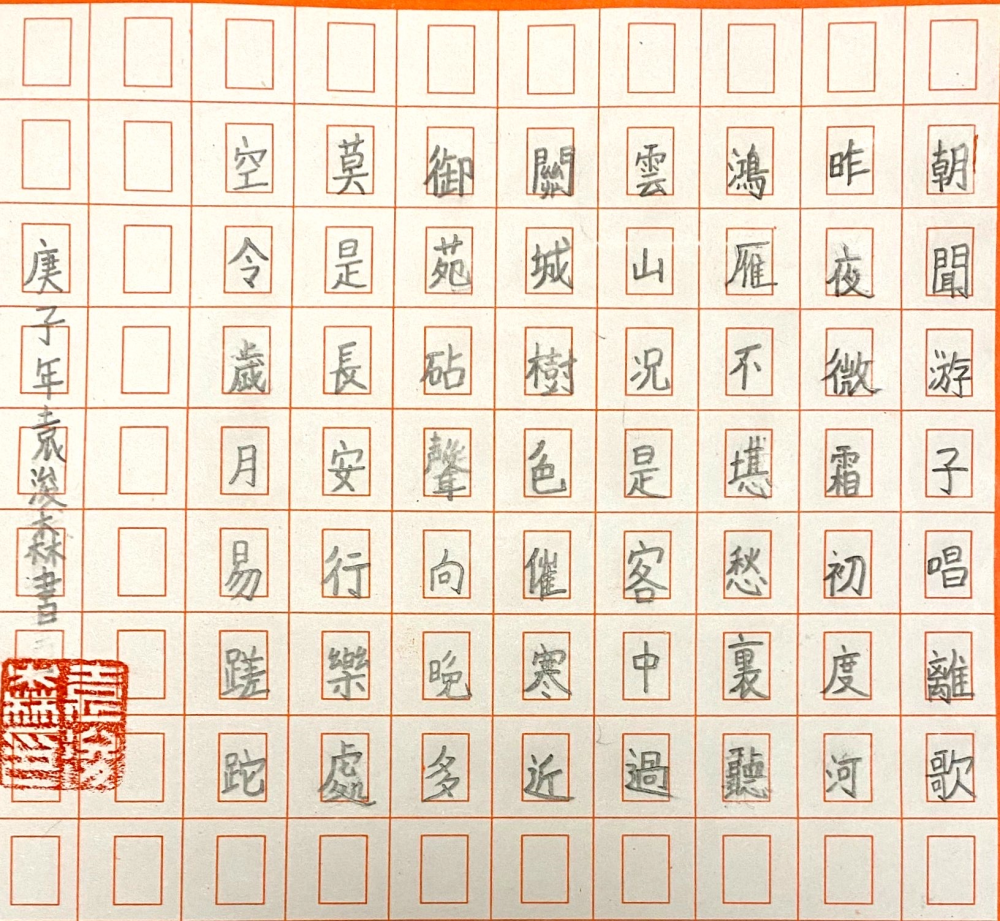 朝聞游子唱離歌
昨夜微霜初度河
鴻雁不堪愁裏聽
雲山況是客中過
關城樹色催寒近
御苑砧聲向晚多
莫是長安行樂處
空令歲月易蹉跎
庚子年袁浚森書